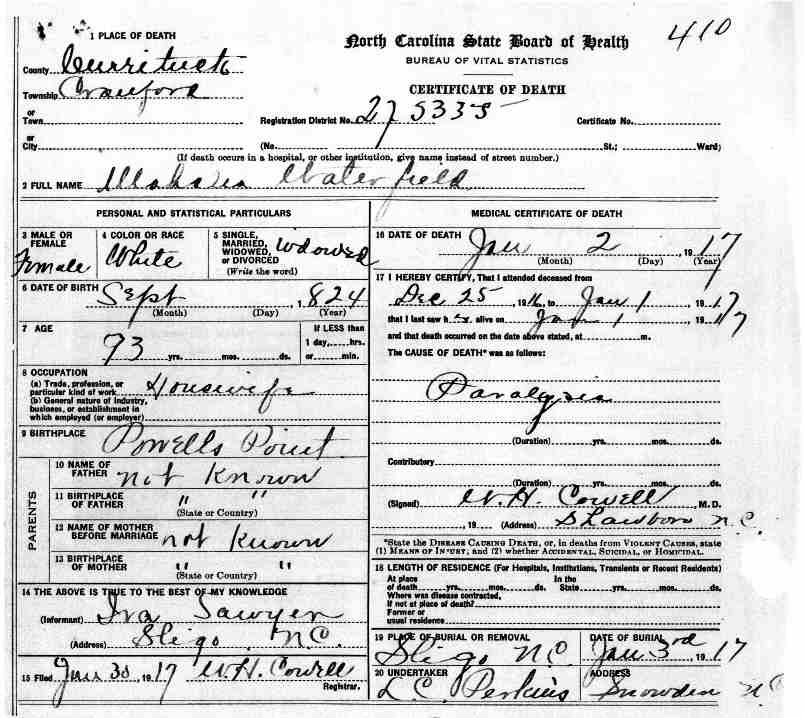 410
1 PLACE OF DEATH
North Carolina State Board of Health
BUREAU OF VITAL STATISTICS
County Currituck
Township Crawford
CERTIFICATE OF DEATH
or
Town
Registration District No. 27 5335
Certificate No.
or
City
(No. St.; Ward)
(If death occurs in a hospital, or other institution, give name instead of street number.)
2 FULL NAME Waterfield
PERSONAL AND STATISTICAL PARTICULARS
3 MALE OR FEMALE
Female
4 COLOR OR RACE
White
5 SINGLE, MARRIED, WIDOWED, or DIVORCED
(Write the word)
Widowed
6 DATE OF BIRTH Sept 1824
(Month) (Day) (Year)
7 AGE
93 yrs. mos. ds.
If LESS than
1 day, hrs.
or min.
8 OCCUPATION
(a) Trade, profession, or
particular kind of work Housewife
(b) General nature of industry,
business, or establishment in
which employed (or employer)
9 BIRTHPLACE Powells Point
PARENTS
10 NAME OF FATHER not Known
11 BIRTHPLACE OF FATHER " "
(State or Country)
12 NAME OF MOTHER BEFORE MARRIAGE not Known
13 BIRTHPLACE OF MOTHER " "
(State or Country)
14 THE ABOVE IS TRUE TO THE BEST OF MY KNOWLEDGE
(Informant) Iva Sawyer
(Address) Sligo N.C.
15 Filed Jan 30 1917 W.H. Cowell
Registrar.
MEDICAL CERTIFICATE OF DEATH
16 DATE OF DEATH Jan 2, 1917
(Month) (Day) (Year)
17 I HEREBY CERTIFY, That I attended deceased from
Dec 25, 1916, to Jan 1, 1917
that I last saw her alive on Jan 1, 1917
and that death occurred on the date above stated, at m.
The CAUSE OF DEATH* was as follows:
Paralysis
(Duration) yrs. mos. ds.
Contributory
(Duration) yrs. mos. ds.
(Signed) W.H. Cowell, M.D.
, 19 (Address) Shawboro N.C.
*State the DISEASE CAUSING DEATH, or, in deaths from VIOLENT CAUSES, state
(1) MEANS OF INJURY, and (2) whether ACCIDENTAL, SUICIDAL, or HOMICIDAL.
18 LENGTH OF RESIDENCE (For Hospitals, Institutions, Transients or Recent Residents)
At place In the
of death yrs. mos. ds. State yrs. mos. ds.
Where was disease contracted,
If not at place of death?
Former or
usual residence
19 PLACE OF BURIAL OR REMOVAL
Sligo NC
DATE OF BURIAL
Jan 3rd 1917
20 UNDERTAKER
L.C. Perkins
ADDRESS
Snowden NC